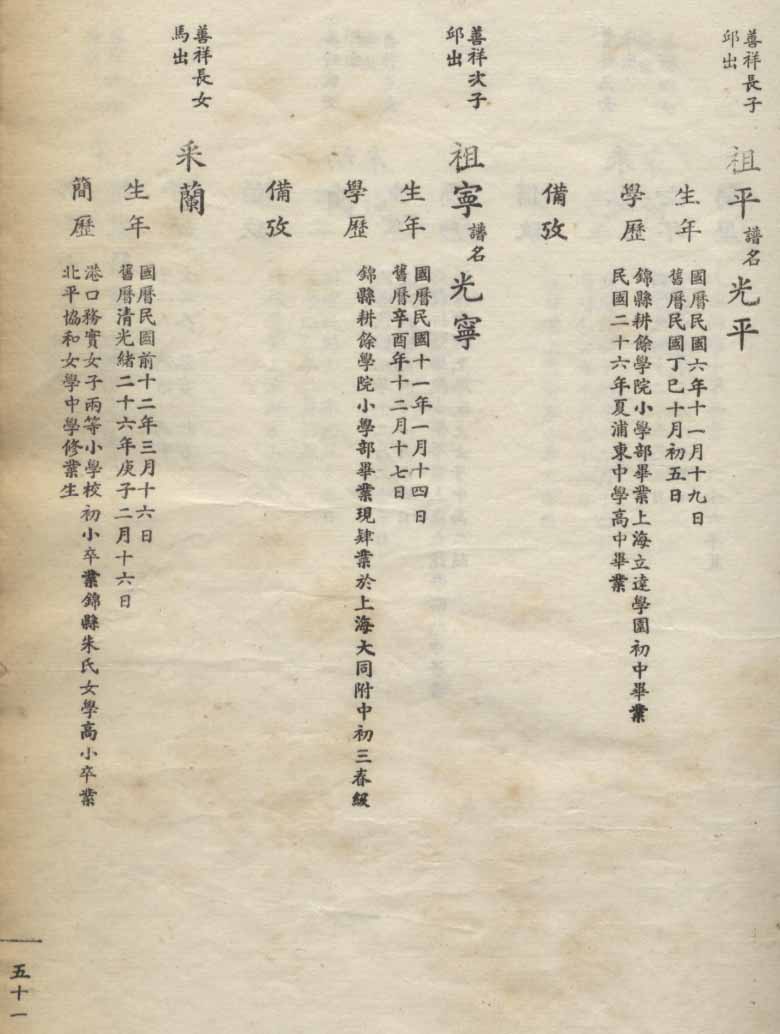 善祥長子
邱出
祖平譜名光平
生年
國曆民國六年十一月十九日
舊曆民國丁巳十月初五日
學歷
錦縣耕餘學院小學部畢業上海立達學園初中畢業
民國二十六年夏浦東中學高中畢業
備攷
善祥次子
邱出
祖寧譜名光寧
生年
國曆民國十一年一月十四日
舊曆辛酉年十二月十七日
學歷
錦縣耕餘學院小學部畢業現肄業於上海大同附中初三春級
備攷
善祥長女
馬出
采蘭
生年
國曆民國前十二年三月十六日
舊曆清光緒二十六年庚子二月十六日
簡歷
港口務實女子兩等小學校初小卒業錦縣朱氏女學高小卒業
北平協和女學中學修業生
五十一